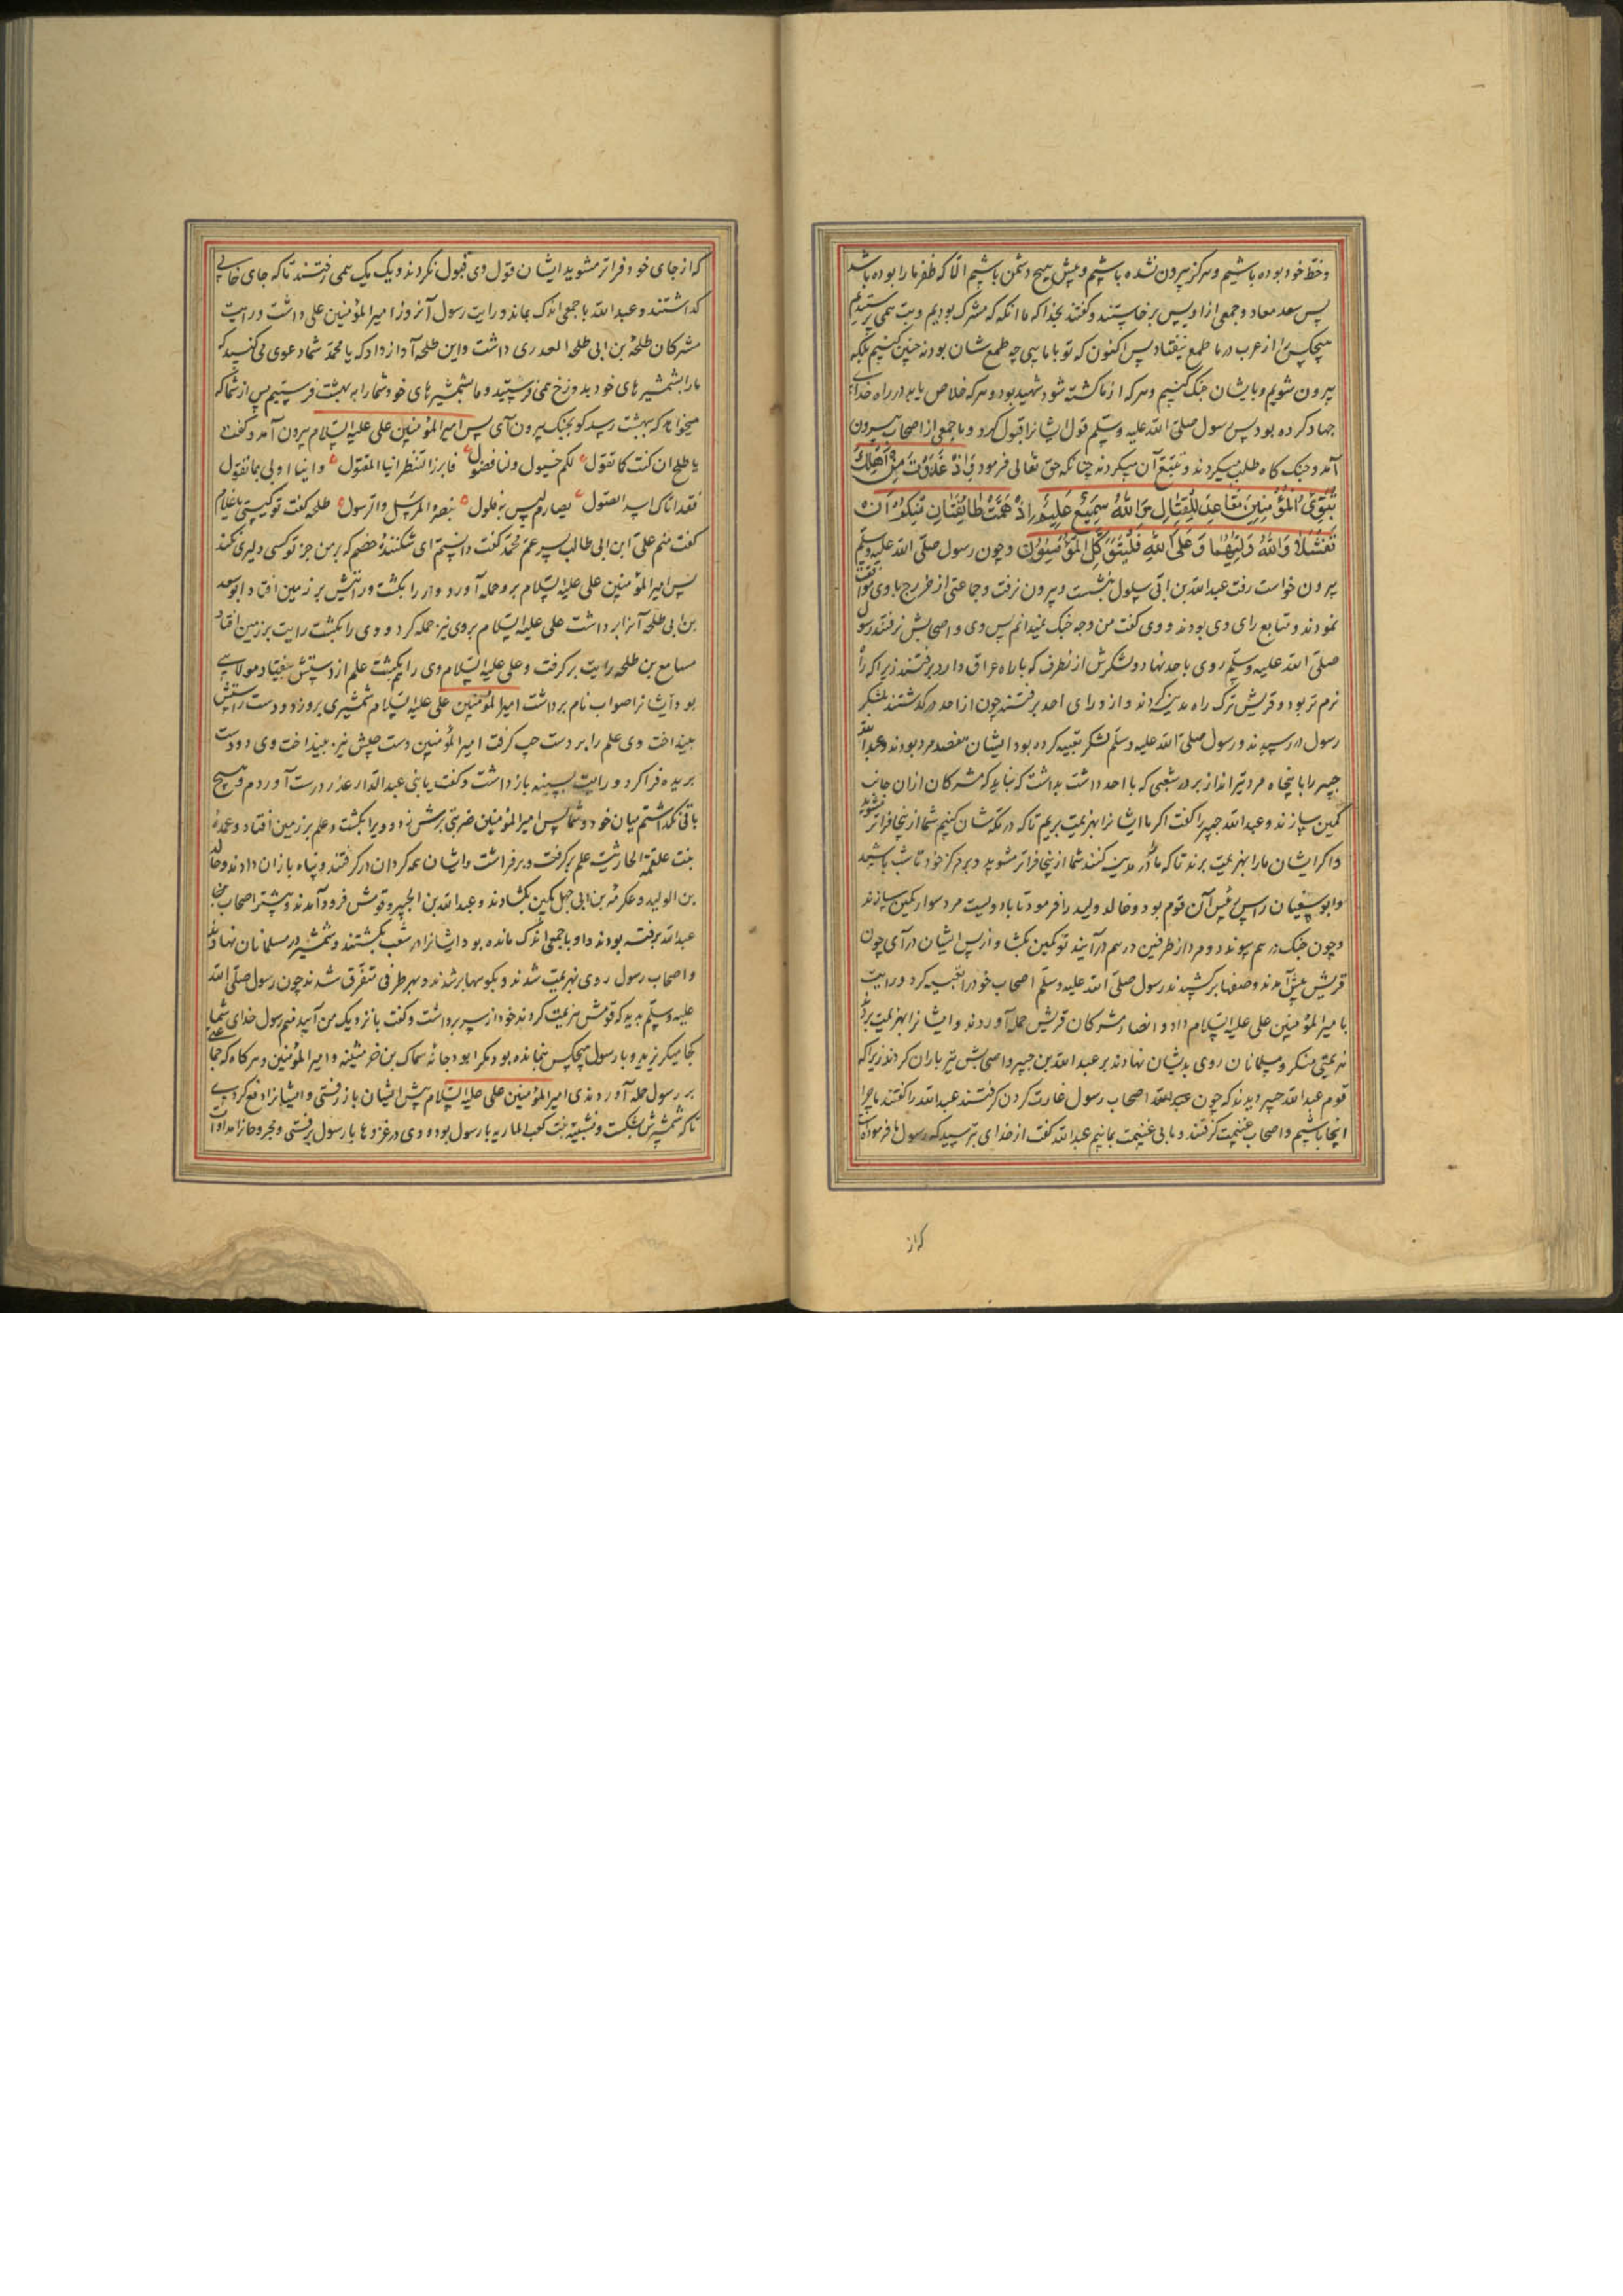 و خطّ خود بوده باشیم و هرگز بیرون نشده باشیم و پیش هیچ دشمن باشیم الّا که ظفر ما را بوده باشد
پس سعد معاد و جمعی از اوپس برخاستند و گفتند بخدا که ما انکه که مشرک بودیم و بت همی پرستیدیم
هیچکس را از عرب در ما طمع نیفتاد پس اکنون که تو با مایی چه طمع شان بود نه چنین کنیم بلکه
بیرون شویم و با ایشان جنک کنیم و هرکه از ما کشته شود شهید بود و هرکه خلاص یابد در راه خدای
جهاد کرده بود پس رسول صلّی الله علیه و سلّم قول ایشانرا قبول کرد و با جمعی از اصحاب بیرون
آمد و جنک کاه طلب میکردند و تتبّع آن میکردند چنانکه حق تعالی فرمود وَاِذْ غَدَوْتَ مِنْ اَهْلِكَ
تُبَوِّئُ الْمُؤْمِنِينَ مَقَاعِدَ لِلْقِتَالِ وَاللّٰهُ سَمِيعٌ عَلِيمٌ اِذْ هَمَّتْ طَائِفَتَانِ مِنْكُمْ اَنْ
تَفْشَلَا وَاللّٰهُ وَلِيُّهُمَا وَعَلَى اللّٰهِ فَلْيَتَوَكَّلِ الْمُؤْمِنُونَ و چون رسول صلّی الله علیه و سلّم
بیرون خواست رفت عبد الله بن ابّی سلول بنشست و بیرون نرفت و جماعتی از خزرج با وی موافقت
نمودند و متابع رای وی بودند و وی گفت من وجه جنک نمیدانم پس وی و اصحابش نرفتند رسول
صلّی الله علیه و سلّم روی باحد نهاد و لشکرش از نطرف که با راه عراق دارد برفتند زیرا که راه
نرم تر بود و قریش ترک راه مدینه کردند و از ورای احد برفتند چون از احد درگذشتند بلشکر
رسول در رسیدند و رسول صلّی الله علیه و سلّم لشکر تعبیه کرده بود ایشان هفصد مرد بودند و عبد الله
جبیر را با پنجاه مرد تیر انداز بر در شعبی که با احد داشت بداشت که نباید که مشرکان از آن جانب
کمین سازند و عبد الله جبیر را گفت اگر ما ایشانرا بهزیمت بریم تا که در مکّه شان کنیم شما از ینجا فراتر مشوید
و اگر ایشان ما را بهزیمت برند تا که ما را در مدینه کنند شما از ینجا فراتر مشوید و بر مرکز خود تا شب باشید
و ابو سفیان رئیس آن قوم بود و خالد ولید را فرمود تا با دویست مرد سوار کمین سازند
و چون جنک در هم پیوندد و مرد از طرفین در هم آیند تو کمین بکشا و از پس ایشان در آی چون
قریش پیش آمدند و صفها برکشیدند رسول صلّی الله علیه و سلّم اصحاب خود را تعبیه کرد و رایت
با میر المؤمنین علی علیه السّلام داد و انصار مشرکان قریش حمله آوردند و ایشانرا بهزیمت بردند
هزیمتی منکر و مسلمانان روی بدیشان نهادند بر عبد الله بن جبیر و اصحابش تیر باران کردند زیرا که
قوم عبد الله جبیر دیدند که چون اصحاب رسول غارت کردن گرفتند عبد الله را گفتند ما چرا
اینجا باشیم و اصحاب غنیمت گرفتند و ما بی غنیمت بمانیم عبد الله گفت از خدای بترسید که رسول ما فرموده است
که از
که از جای خود فراتر مشوید ایشان قول وی قبول نکردند و یک یک همی رفتند تا که جای خالی
کذاشتند و عبد الله با جمعی اندک بماند و رایت رسول آنروز امیر المؤمنین علی داشت و رایت
مشرکان طلحة بن ابی طلحة العدری داشت و این طلحه آواز داد که یا محمّد شما دعوی می کنید که
ما را بشمشیر های خود بدوزخ همی فرستید و ما بشمشیر های خود شما را به بهشت فرستیم پس از شما که
میخواهد که ببهشت رسد کو بجنک بیرون آی پس امیر المؤمنین علی علیه السّلام بیرون آمد و گفت
یا طلح ان کنت کما تقول لکم خیول و لنا فضول فابرز لننظر اینا المقتول و اینا اولی بما تقول
فقد اتاک اسد الصئول بصارم لیس به فلول ینصر المرسل والرسول طلحه گفت تو کیستی یا غلام
گفت منم علی ابن ابی طالب پسر عمّ محمّد گفت دانستم ای شکنندۀ خصم که بر من جز تو کسی دلیری نکند
پس امیر المؤمنین علی علیه السّلام برو حمله آورد و او را بکشت و رایتش بر زمین افتاد و ابو سعد
بن ابی طلحه آنرا برداشت علی علیه السّلام بر وی نیز حمله کرد و وی را بکشت رایت بر زمین افتاد
مسامع بن طلحه رایت برگرفت و علی علیه السّلام وی را بکشت علم از دستش بیفتاد مولایی
بود ایشانرا صواب نام برداشت امیر المؤمنین علی علیه السّلام شمشیری برو زد و دست راستش
بینداخت وی علم را بر دست چپ گرفت امیر المؤمنین دست چپش نیز بینداخت وی دو دست
بریده فرا کرد و رایت بسینه باز داشت و گفت یا بنی عبد الدّار عذر درست آوردم و هیچ
باقی نکذاشتم میان خود و شما پس امیر المؤمنین ضربتی بر سرش زد و ویرا بکشت و علم بر زمین افتاد و عمرة
بنت علقمة الحارثیه علم برگرفت و برافراشت و ایشان همه کردان در گرفتند و پناه باز ان دادند و خالد
بن الولید و عکرمة بن ابی جهل کمین بکشادند و عبد الله بن الجبیر و قومش فرود آمدند و بیشتر اصحاب
عبد الله برفته بودند و او با جمعی اندک مانده بود ایشانرا در شعب بکشتند و شمشیر در مسلمانان نهادند
و اصحاب رسول روی بهزیمت شدند و بکوهها بر شدند و بهر طرفی متفرّق شدند چون رسول صلّی الله
علیه و سلّم بدید که قومش هزیمت کردند خود از سر برداشت و گفت با نزدیک من آیید منم رسول خدای شما
کجا میگریزید و با رسول هیچکس نمانده بود مکر ابو دجانه سماک بن خرشنه و امیر المؤمنین و هرکاه که جماعتی
بر رسول حمله آوردندی امیر المؤمنین علی علیه السّلام پیش ایشان باز رفتی و ایشانرا دفع کردی
تا که شمشیرش بشکست و نسیبه بنت کعب الماریه با رسول بود و وی در غزوها با رسول برفتی و مجروحانرا مداوات